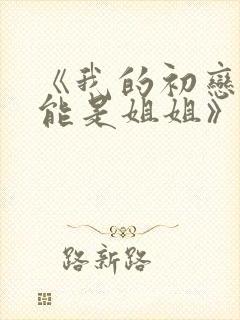 《我的初戀
能是姐姐》
路新路